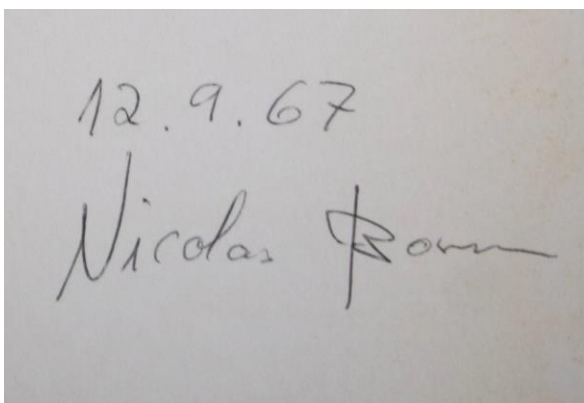 12.9.67
Nicolas Born